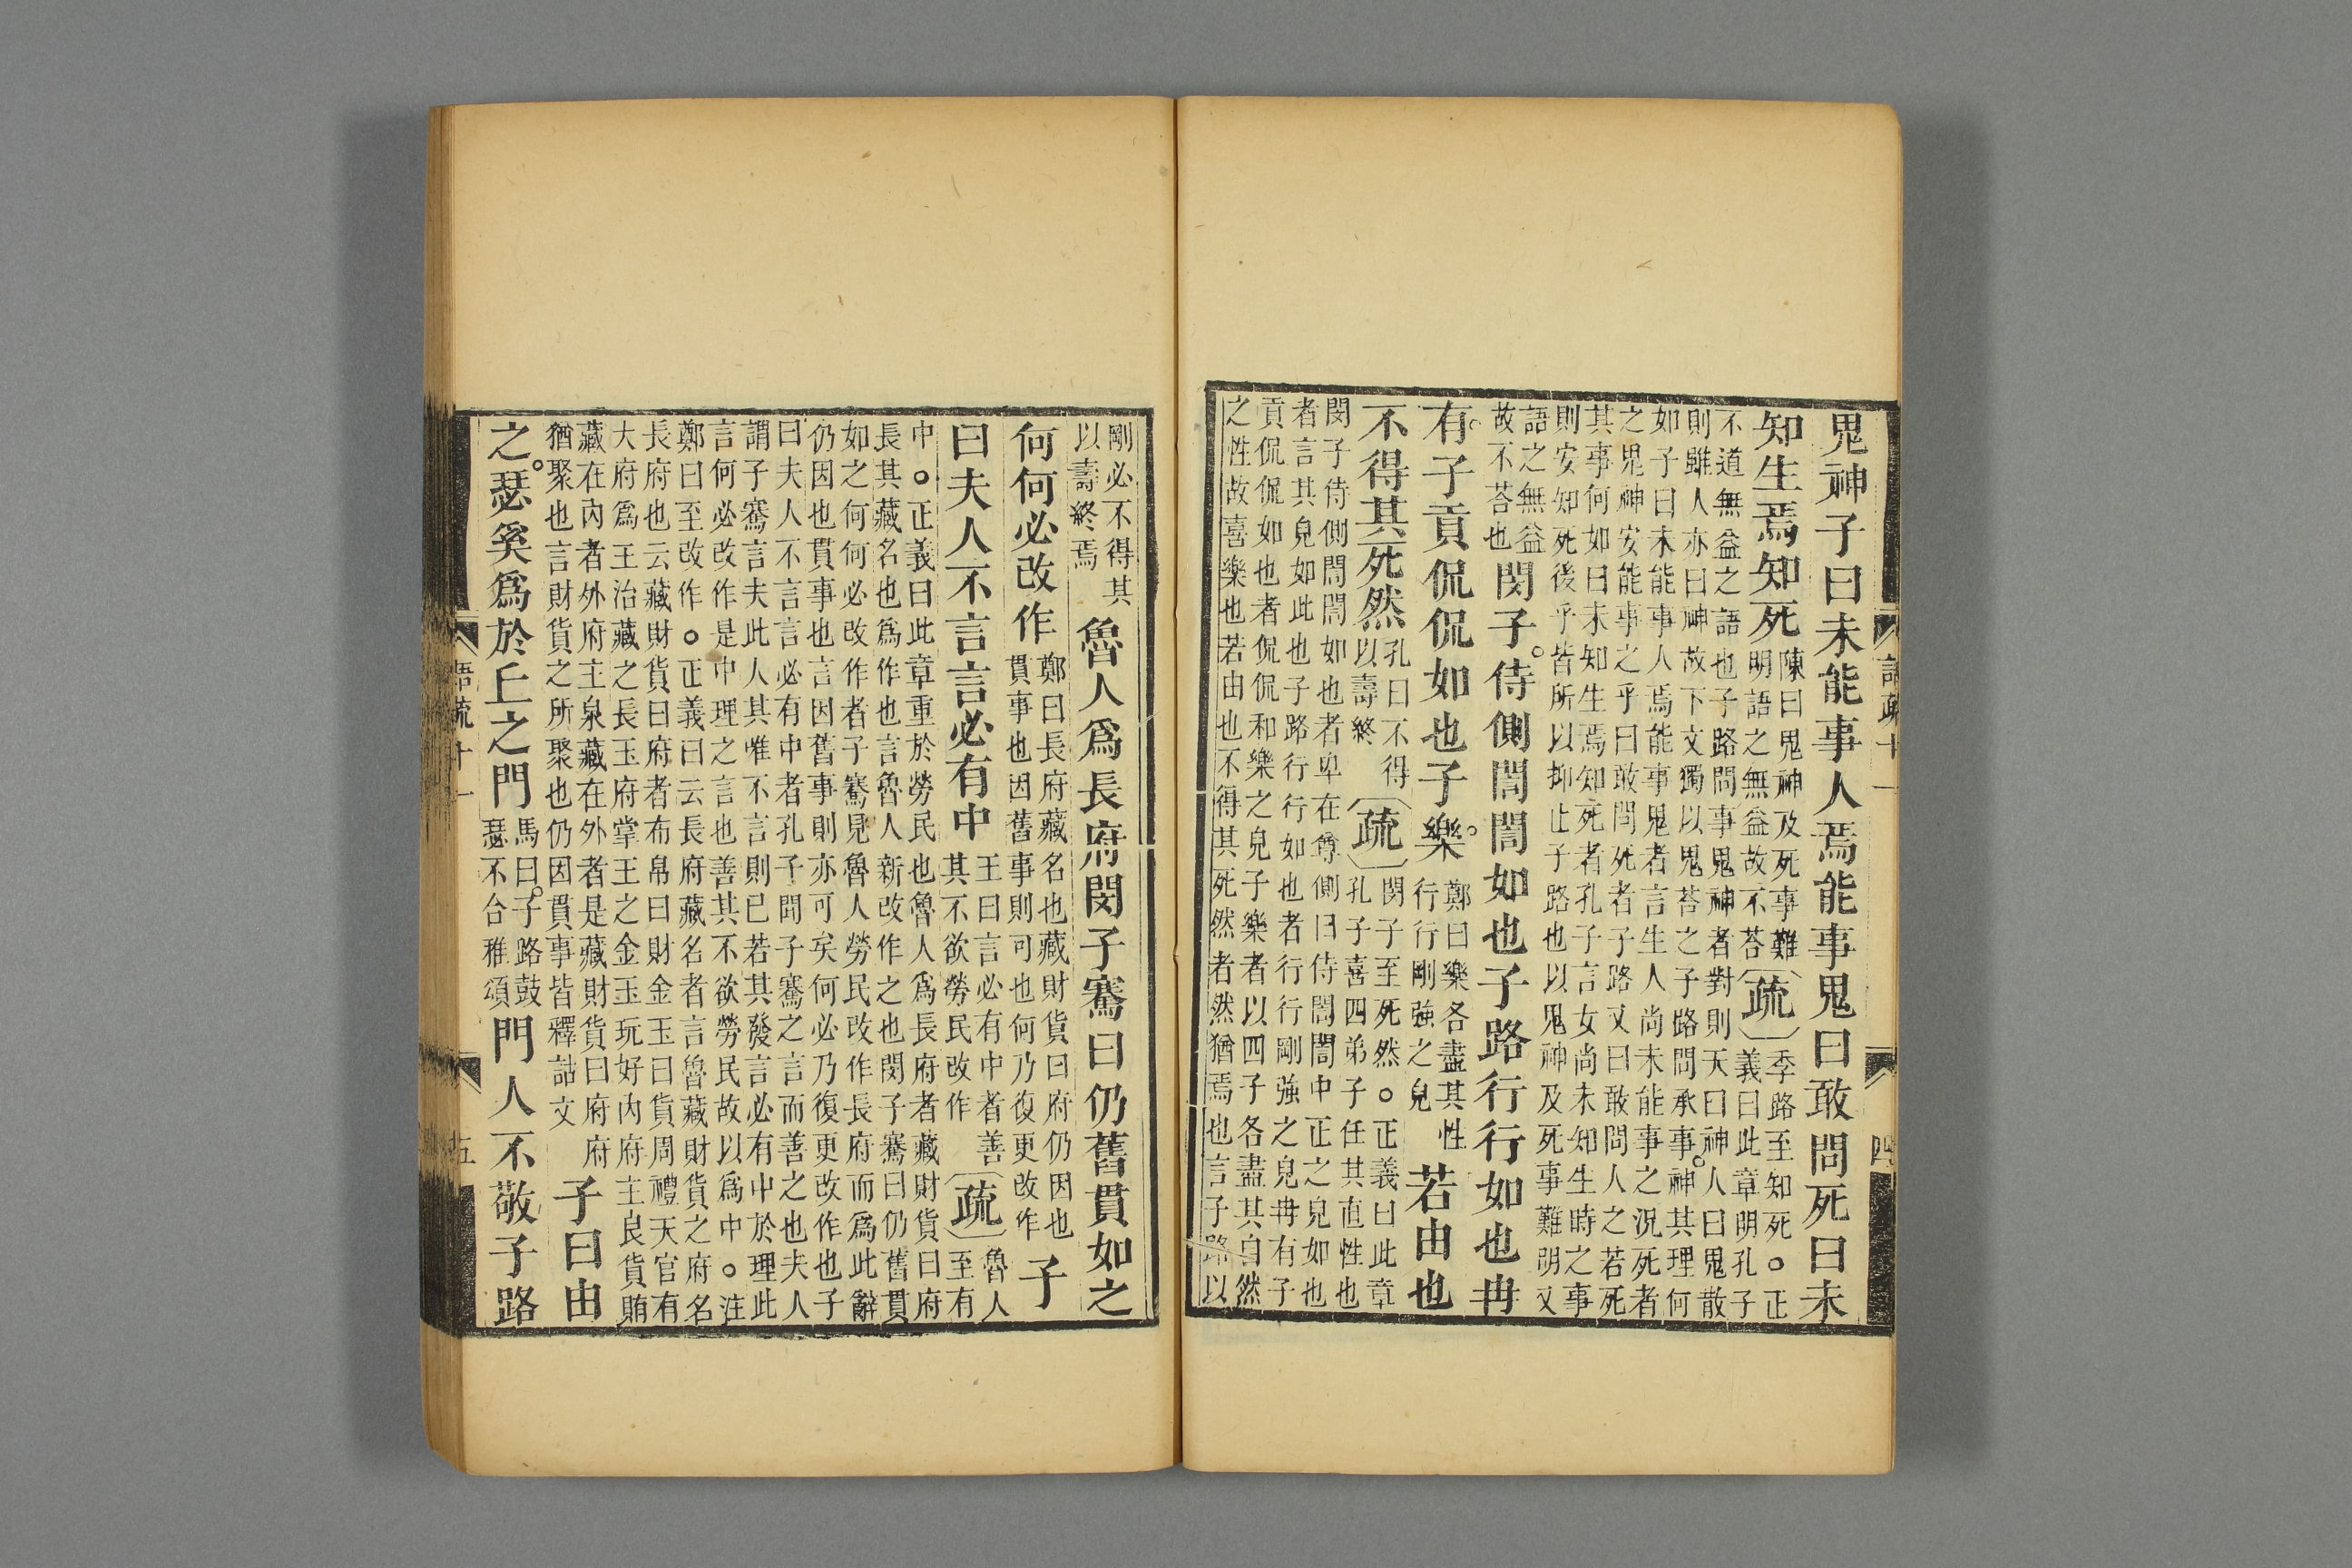 鬼神子曰未能事人焉能事鬼曰敢問死曰未
知生焉知死
陳曰鬼神及死事難
明語之無益故不荅
〔疏〕
季路至知死○正
義曰此章明孔子
不道無益之語也子路問事鬼神者對則天曰神人曰鬼散
則雖人亦曰神故下文獨以鬼荅之子路問承事神其理何
如子曰未能事人焉能事鬼者言生人尚未能事之況死者
之鬼神安能事之乎曰敢問死者子路又曰敢問人之若死
其事何如曰未知生焉知死者孔子言女尚未知生時之事
則安知死後乎皆所以抑止子路也以鬼神及死事難明又
語之無益
故不荅也
閔子侍側誾誾如也子路行行如也冉
有子貢侃侃如也子樂
鄭曰樂各盡其性
行行剛強之皃
若由也
不得其死然
孔曰不得
以壽終
〔疏〕
閔子至死然○正義曰此章
孔子喜四弟子任其直性也
閔子侍側誾誾如也者卑在尊側曰侍誾誾中正之皃如也
者言其皃如此也子路行行如也者行行剛強之皃冉有子
貢侃侃如也者侃侃和樂之皃子樂者以四子各盡其自然
之性故喜樂也若由也不得其死然者然猶焉也言子路以
剛必不得其
以壽終焉
魯人爲長府閔子騫曰仍舊貫如之
何何必改作
鄭曰長府藏名也藏財貨曰府仍因也
貫事也因舊事則可也何乃復更改作
子
曰夫人不言言必有中
王曰言必有中者善
其不欲勞民改作
〔疏〕
魯人
至有
中○正義曰此章重於勞民也魯人爲長府者藏財貨曰府
長其藏名也爲作也言魯人新改作之也閔子騫曰仍舊貫
如之何何必改作者子騫見魯人勞民改作長府而爲此辭
仍因也貫事也言因舊事則亦可矣何必乃復更改作也子
曰夫人不言言必有中者孔子聞子騫之言而善之也夫人
謂子騫言夫此人其唯不言則已若其發言必有中於理此
言何必改作是中理之言也善其不欲勞民故以爲中○注
鄭曰至改作○正義曰云長府藏名者言魯藏財貨之府名
長府也云藏財貨曰府者布帛曰財金玉曰貨周禮天官有
大府爲王治藏之長玉府掌王之金玉玩好內府主良貨賄
藏在內者外府主泉藏在外者是藏財貨曰府府
猶聚也言財貨之所聚也仍因貫事皆釋詁文
子曰由
之瑟奚爲於丘之門
馬曰子路鼓
瑟不合雅頌
門人不敬子路